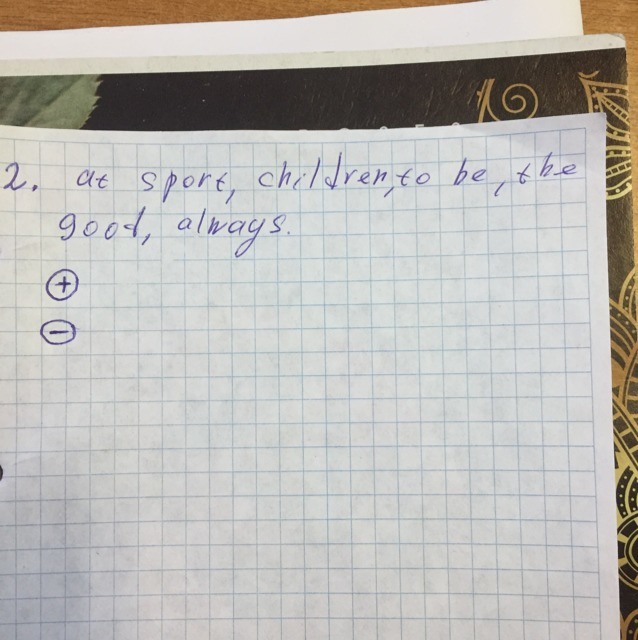 2. at sport, children, to be, the
good, always.
+
-